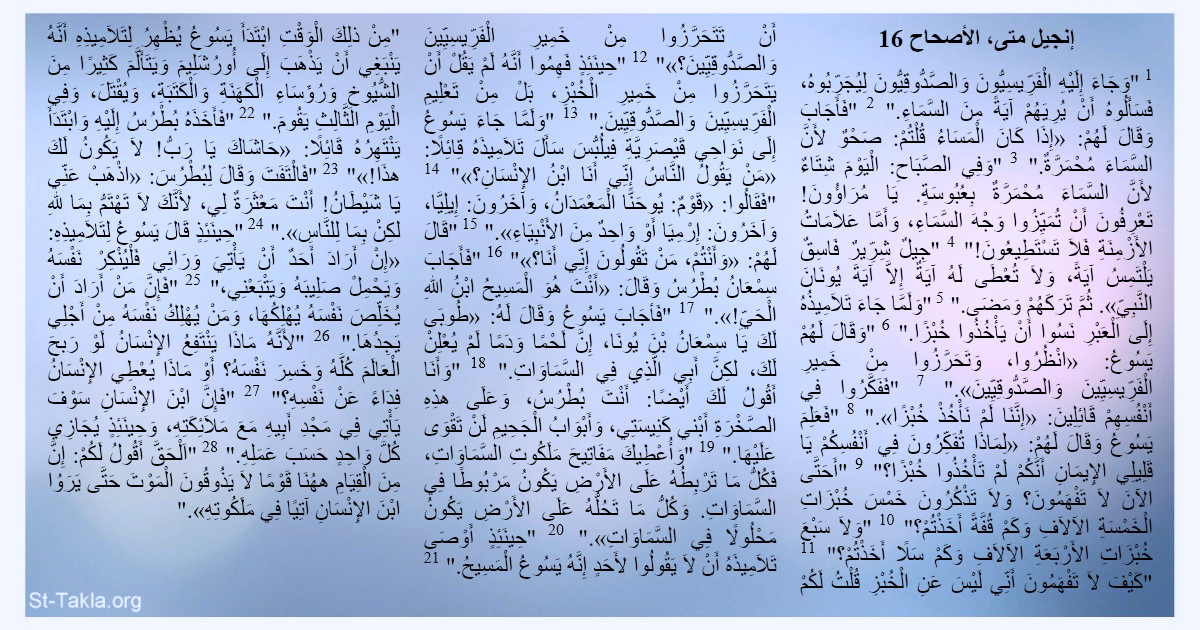 إنجيل متى، الأصحاح 16
1 "وَجَاءَ إِلَيْهِ الْفَرِّيسِيُّونَ وَالصَّدُّوقِيُّونَ لِيُجَرِّبُوهُ،
فَسَأَلُوهُ أَنْ يُرِيَهُمْ آيَةً مِنَ السَّمَاءِ." 2 "فَأَجَابَ
وَقَالَ لَهُمْ: «إِذَا كَانَ الْمَسَاءُ قُلْتُمْ: صَحْوٌ لأَنَّ
السَّمَاءَ مُحْمَرَّةٌ." 3 "وَفِي الصَّبَاحِ: الْيَوْمَ شِتَاءٌ
لأَنَّ السَّمَاءَ مُحْمَرَّةٌ بِعُبُوسَةٍ. يَا مُرَاؤُونَ!
تَعْرِفُونَ أَنْ تُمَيِّزُوا وَجْهَ السَّمَاءِ، وَأَمَّا عَلاَمَاتُ
الأَزْمِنَةِ فَلاَ تَسْتَطِيعُونَ!" 4 "جِيلٌ شِرِّيرٌ فَاسِقٌ
يَلْتَمِسُ آيَةً، وَلاَ تُعْطَى لَهُ آيَةٌ إِلاَّ آيَةَ يُونَانَ
النَّبِيِّ». ثُمَّ تَرَكَهُمْ وَمَضَى." 5 "وَلَمَّا جَاءَ تَلاَمِيذُهُ
إِلَى الْعَبْرِ نَسُوا أَنْ يَأْخُذُوا خُبْزًا." 6 "وَقَالَ لَهُمْ
يَسُوعُ: «انْظُرُوا، وَتَحَرَّزُوا مِنْ خَمِيرِ
الْفَرِّيسِيِّينَ وَالصَّدُّوقِيِّينَ»." 7 "فَفَكَّرُوا فِي
أَنْفُسِهِمْ قَائِلِينَ: «إِنَّنَا لَمْ نَأْخُذْ خُبْزًا»." 8 "فَعَلِمَ
يَسُوعُ وَقَالَ لَهُمْ: «لِمَاذَا تُفَكِّرُونَ فِي أَنْفُسِكُمْ يَا
قَلِيلِي الإِيمَانِ أَنَّكُمْ لَمْ تَأْخُذُوا خُبْزًا؟" 9 "أَحَتَّى
الآنَ لاَ تَفْهَمُونَ؟ وَلاَ تَذْكُرُونَ خَمْسَ خُبْزَاتِ
الْخَمْسَةِ الآلاَفِ وَكَمْ قُفَّةً أَخَذْتُمْ؟" 10 "وَلاَ سَبْعَ
خُبْزَاتِ الأَرْبَعَةِ الآلاَفِ وَكَمْ سَلاًّ أَخَذْتُمْ؟" 11
"كَيْفَ لاَ تَفْهَمُونَ أَنِّي لَيْسَ عَنِ الْخُبْزِ قُلْتُ لَكُمْ
أَنْ تَتَحَرَّزُوا مِنْ خَمِيرِ الْفَرِّيسِيِّينَ
وَالصَّدُّوقِيِّينَ؟»" 12 "حِينَئِذٍ فَهِمُوا أَنَّهُ لَمْ يَقُلْ أَنْ
يَتَحَرَّزُوا مِنْ خَمِيرِ الْخُبْزِ، بَلْ مِنْ تَعْلِيمِ
الْفَرِّيسِيِّينَ وَالصَّدُّوقِيِّينَ." 13 "وَلَمَّا جَاءَ يَسُوعُ
إِلَى نَوَاحِي قَيْصَرِيَّةِ فِيلُبُّسَ سَأَلَ تَلاَمِيذَهُ قَائِلًا:
«مَنْ يَقُولُ النَّاسُ إِنِّي أَنَا ابْنُ الإِنْسَانِ؟»" 14
"فَقَالُوا: «قَوْمٌ: يُوحَنَّا الْمَعْمَدَانُ، وَآخَرُونَ: إِيلِيَّا،
وَآخَرُونَ: إِرْمِيَا أَوْ وَاحِدٌ مِنَ الأَنْبِيَاءِ»." 15 "قَالَ
لَهُمْ: «وَأَنْتُمْ، مَنْ تَقُولُونَ إِنِّي أَنَا؟»" 16 "فَأَجَابَ
سِمْعَانُ بُطْرُسُ وَقَالَ: «أَنْتَ هُوَ الْمَسِيحُ ابْنُ اللهِ
الْحَيِّ!»." 17 "فَأَجَابَ يَسُوعُ وَقَالَ لَهُ: «طُوبَى
لَكَ يَا سِمْعَانُ بْنَ يُونَا، إِنَّ لَحْمًا وَدَمًا لَمْ يُعْلِنْ
لَكَ، لكِنَّ أَبِي الَّذِي فِي السَّمَاوَاتِ." 18 "وَأَنَا
أَقُولُ لَكَ أَيْضًا: أَنْتَ بُطْرُسُ، وَعَلَى هذِهِ
الصَّخْرَةِ أَبْني كَنِيسَتِي، وَأَبْوَابُ الْجَحِيمِ لَنْ تَقْوَى
عَلَيْهَا." 19 "وَأُعْطِيكَ مَفَاتِيحَ مَلَكُوتِ السَّمَاوَاتِ،
فَكُلُّ مَا تَرْبِطُهُ عَلَى الأَرْضِ يَكُونُ مَرْبُوطًا فِي
السَّمَاوَاتِ. وَكُلُّ مَا تَحُلُّهُ عَلَى الأَرْضِ يَكُونُ
مَحْلُولًا فِي السَّمَاوَاتِ»." 20 "حِينَئِذٍ أَوْصَى
تَلاَمِيذَهُ أَنْ لاَ يَقُولُوا لأَحَدٍ إِنَّهُ يَسُوعُ الْمَسِيحُ." 21
"مِنْ ذلِكَ الْوَقْتِ ابْتَدَأَ يَسُوعُ يُظْهِرُ لِتَلاَمِيذِهِ أَنَّهُ
يَنْبَغِي أَنْ يَذْهَبَ إِلَى أُورُشَلِيمَ وَيَتَأَلَّمَ كَثِيرًا مِنَ
الشُّيُوخِ وَرُؤَسَاءِ الْكَهَنَةِ وَالْكَتَبَةِ، وَيُقْتَلَ، وَفِي
الْيَوْمِ الثَّالِثِ يَقُومَ." 22 "فَأَخَذَهُ بُطْرُسُ إِلَيْهِ وَابْتَدَأَ
يَنْتَهِرُهُ قَائِلًا: «حَاشَاكَ يَا رَبُّ! لاَ يَكُونُ لَكَ
هذَا!»" 23 "فَالْتَفَتَ وَقَالَ لِبُطْرُسَ: «اذْهَبْ عَنِّي
يَا شَيْطَانُ! أَنْتَ مَعْثَرَةٌ لِي، لأَنَّكَ لاَ تَهْتَمُّ بِمَا ِللهِ
لكِنْ بِمَا لِلنَّاسِ»." 24 "حِينَئِذٍ قَالَ يَسُوعُ لِتَلاَمِيذِهِ:
«إِنْ أَرَادَ أَحَدٌ أَنْ يَأْتِيَ وَرَائِي فَلْيُنْكِرْ نَفْسَهُ
وَيَحْمِلْ صَلِيبَهُ وَيَتْبَعْنِي،" 25 "فَإِنَّ مَنْ أَرَادَ أَنْ
يُخَلِّصَ نَفْسَهُ يُهْلِكُهَا، وَمَنْ يُهْلِكُ نَفْسَهُ مِنْ أَجْلِي
يَجِدُهَا." 26 "لأَنَّهُ مَاذَا يَنْتَفِعُ الإِنْسَانُ لَوْ رَبِحَ
الْعَالَمَ كُلَّهُ وَخَسِرَ نَفْسَهُ؟ أَوْ مَاذَا يُعْطِي الإِنْسَانُ
فِدَاءً عَنْ نَفْسِهِ؟" 27 "فَإِنَّ ابْنَ الإِنْسَانِ سَوْفَ
يَأْتِي فِي مَجْدِ أَبِيهِ مَعَ مَلاَئِكَتِهِ، وَحِينَئِذٍ يُجَازِي
كُلَّ وَاحِدٍ حَسَبَ عَمَلِهِ." 28 "اَلْحَقَّ أَقُولُ لَكُمْ: إِنَّ
مِنَ الْقِيَامِ ههُنَا قَوْمًا لاَ يَذُوقُونَ الْمَوْتَ حَتَّى يَرَوُا
ابْنَ الإِنْسَانِ آتِيًا فِي مَلَكُوتِهِ»."
St-Takla.org